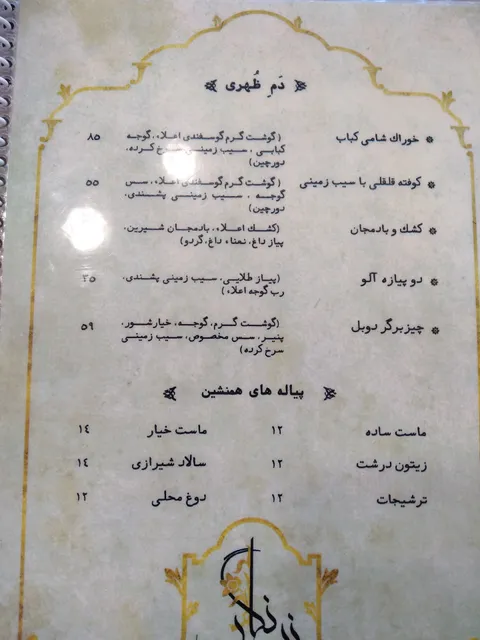 دَمِ ظُهری
خوراك شامی کباب (گوشت گرم گوسفندی اعلاء، گوجه ۸۵
کبابی، سیب زمینی سرخ کرده،
دورچین)
کوفته قلقلی با سیب زمینی (گوشت گرم گوسفندی اعلاء، سس ۵۵
گوجه، سیب زمینی پشندی،
دورچین)
کشك و بادمجان (کشك اعلاء، بادمجان شیرین،
پیاز داغ، نعناء داغ، گردو)
دو پیازه آلو (پیاز طلایی، سیب زمینی پشندی، ۳۵
رب گوجه اعلاء)
چیزبرگر دوبل (گوشت گرم، گوجه، خیارشور، ۵۹
پنیر، سس مخصوص، سیب زمینی
سرخ کرده)
پیاله های همنشین
ماست ساده ۱۲ ماست خیار ۱۴
زیتون درشت ۱۲ سالاد شیرازی ۱۴
ترشیجات ۱۲ دوغ محلی ۱۲